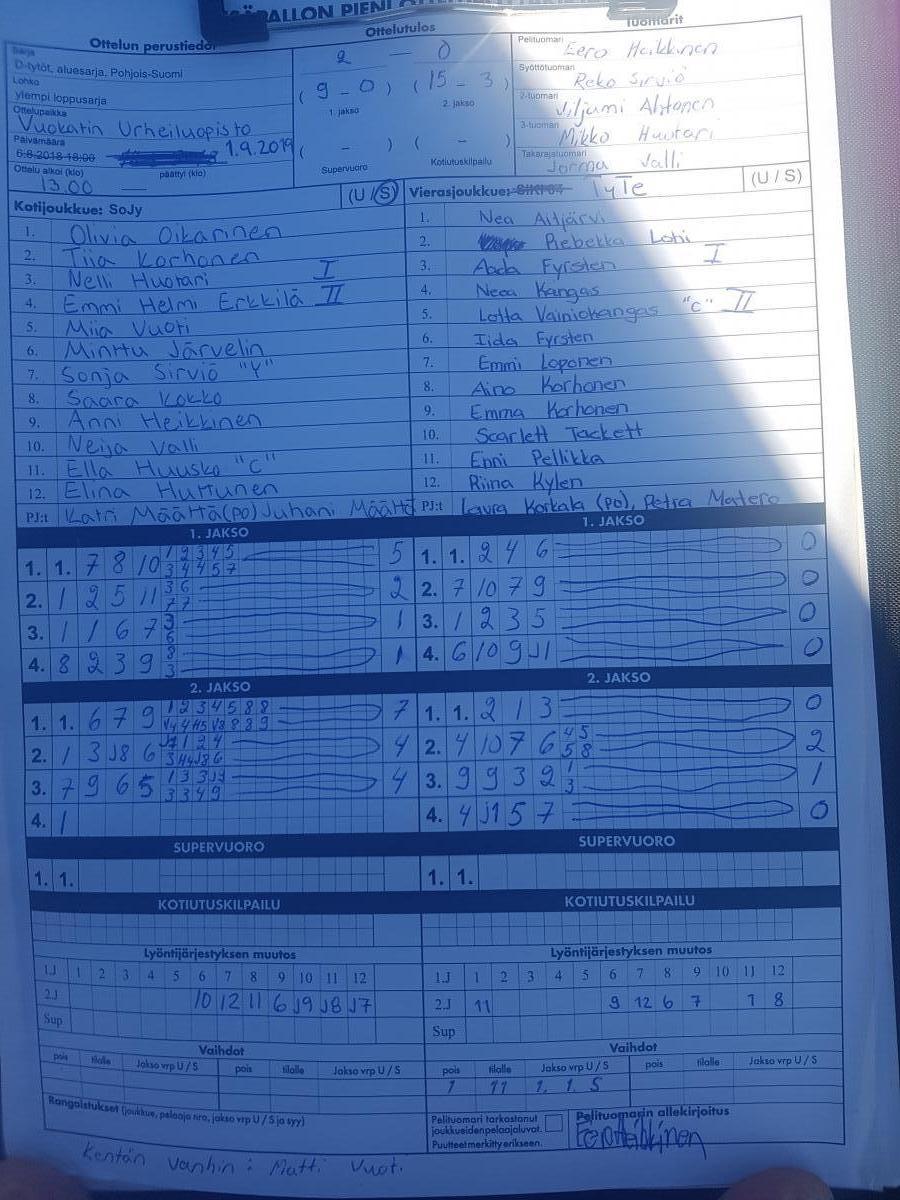 PALLON PIENI
Ottelun perustiedot
Ottelutulos
Tuomarit
Sarja
D-tytöt, aluesarja, Pohjois-Suomi
Lohko
ylempi loppusarja
Ottelupaikka
Vuokatin Urheiluopisto
Päivämäärä
6.8.2018 18:00 1.9.2019
Ottelu alkoi (klo) päättyi (klo)
13.00
2 – 0
(9 – 0) (15 – 3)
1. jakso 2. jakso
( – ) ( – )
Supervuoro Kotiutuskilpailu
Pelituomari
Eero Heikkinen
Syöttötuomari
Reko Sirviö
2-tuomari
Viljami Ahtonen
3-tuomari
Mikko Huotari
Takarajatuomari
Jorma Valli
Kotijoukkue: SoJy (U / S)
1. Olivia Oikarinen
2. Tiia Korhonen
3. Nelli Huotari I
4. Emmi Helmi Erkkilä II
5. Miia Vuoti
6. Minttu Järvelin
7. Sonja Sirviö "Y"
8. Saara Kokko
9. Anni Heikkinen
10. Neija Valli
11. Ella Huusko "C"
12. Elina Huttunen
PJ:t Katri Määttä(po) Juhani Määttä
Vierasjoukkue: TyTe (U / S)
1. Nea Äijärvi
2. Rebekka Lohi
3. Aada Fyrsten I
4. Neea Kangas
5. Lotta Vainiokangas "C" II
6. Iida Fyrsten
7. Emmi Loponen
8. Aino Korhonen
9. Emma Korhonen
10. Scarlett Tackett
11. Enni Pellikka
12. Riina Kylen
PJ:t Laura Korkala (po), Petra Matero
1. JAKSO
1. 1. 7 8 10 1 2 3 4 5 5
3 4 4 5 7
2. 1 2 5 11 3 6 2
7 7
3. 1 1 6 7 3 1
6
4. 8 2 3 9 8 1
3
1. JAKSO
1. 1. 2 4 6 0
2. 7 10 7 9 0
3. 1 2 3 5 0
4. 6 10 9 J1 0
2. JAKSO
1. 1. 6 7 9 1 2 3 4 5 8 8 7
2. 1 3 J8 6 4
3. 7 9 6 5 4
3 3 4 9
4. 1
2. JAKSO
1. 1. 2 1 3 0
2. 4 10 7 6 4 5 2
5 8
3. 9 9 3 2 1 1
3
4. 4 J1 5 7 0
SUPERVUORO
1. 1.
SUPERVUORO
1. 1.
KOTIUTUSKILPAILU
KOTIUTUSKILPAILU
Lyöntijärjestyksen muutos
1.J 1 2 3 4 5 6 7 8 9 10 11 12
2.J 10 12 11 6 J9 J8 J7
Sup
Lyöntijärjestyksen muutos
1.J 1 2 3 4 5 6 7 8 9 10 11 12
2.J 11 9 12 6 7 1 8
Sup
Vaihdot
pois tilalle Jakso vrp U / S pois tilalle Jakso vrp U / S
Vaihdot
pois tilalle Jakso vrp U / S pois tilalle Jakso vrp U / S
1 11 1. 1. S
Rangaistukset (joukkue, pelaaja nro, jakso vrp U / S ja syy)
Pelituomari tarkastanut
joukkueiden pelaajaluvat.
Puutteet merkitty erikseen.
Pelituomarin allekirjoitus
Eero Heikkinen
Kentän vanhin: Matti Vuoti